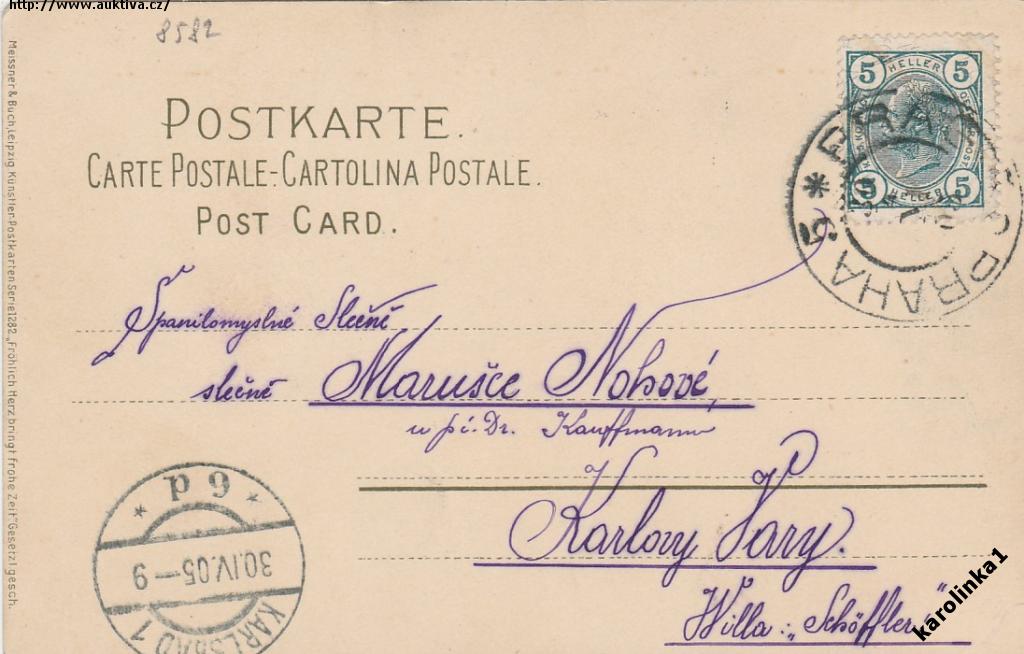 http://www.auktiva.cz/
8582
POSTKARTE.
CARTE POSTALE-CARTOLINA POSTALE.
POST CARD.
5 HELLER 5
5 HELLER 5
PRAHA 5 *
Spanilomyslné Slečně
slečně Marušce Nohové,
u pí. Dr. Kauffmann
Karlovy Vary.
Willa: „Schöffler"
* p 9 *
30.IV.05-9
KARLSBAD 1
Meissner & Buch, Leipzig Künstler-Postkarten Serie 1282 „Fröhlich Herz bringt frohe Zeit" Gesetzl. gesch.
karolinka1